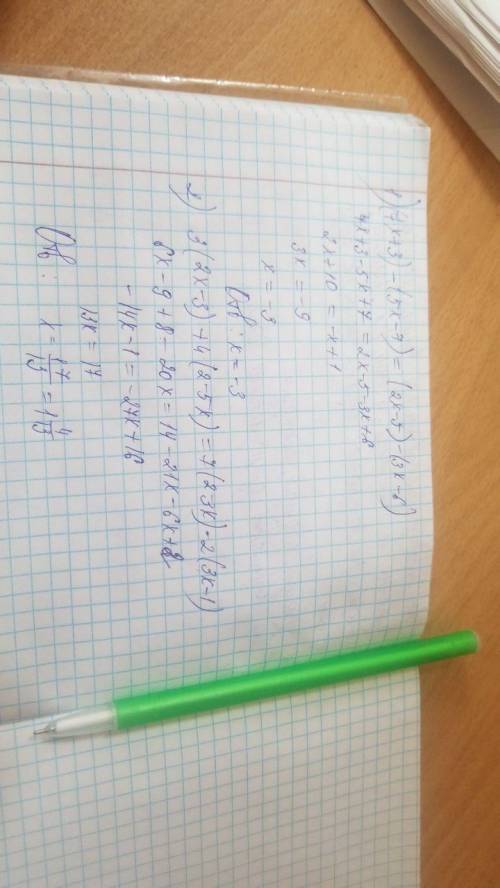 1) (4x+3)-(5x-7)=(2x-5)-(3x-6)
4x+3-5x+7=2x-5-3x+6
2x+10=-x+1
3x=-9
x=-3
Отв: x=-3
2) 3(2x-3)+4(2-5x)=7(2-3x)-2(3x-1)
6x-9+8-20x=14-21x-6x+2
-14x-1=-27x+16
13x=17
x=17/13=1 4/13
Отв: